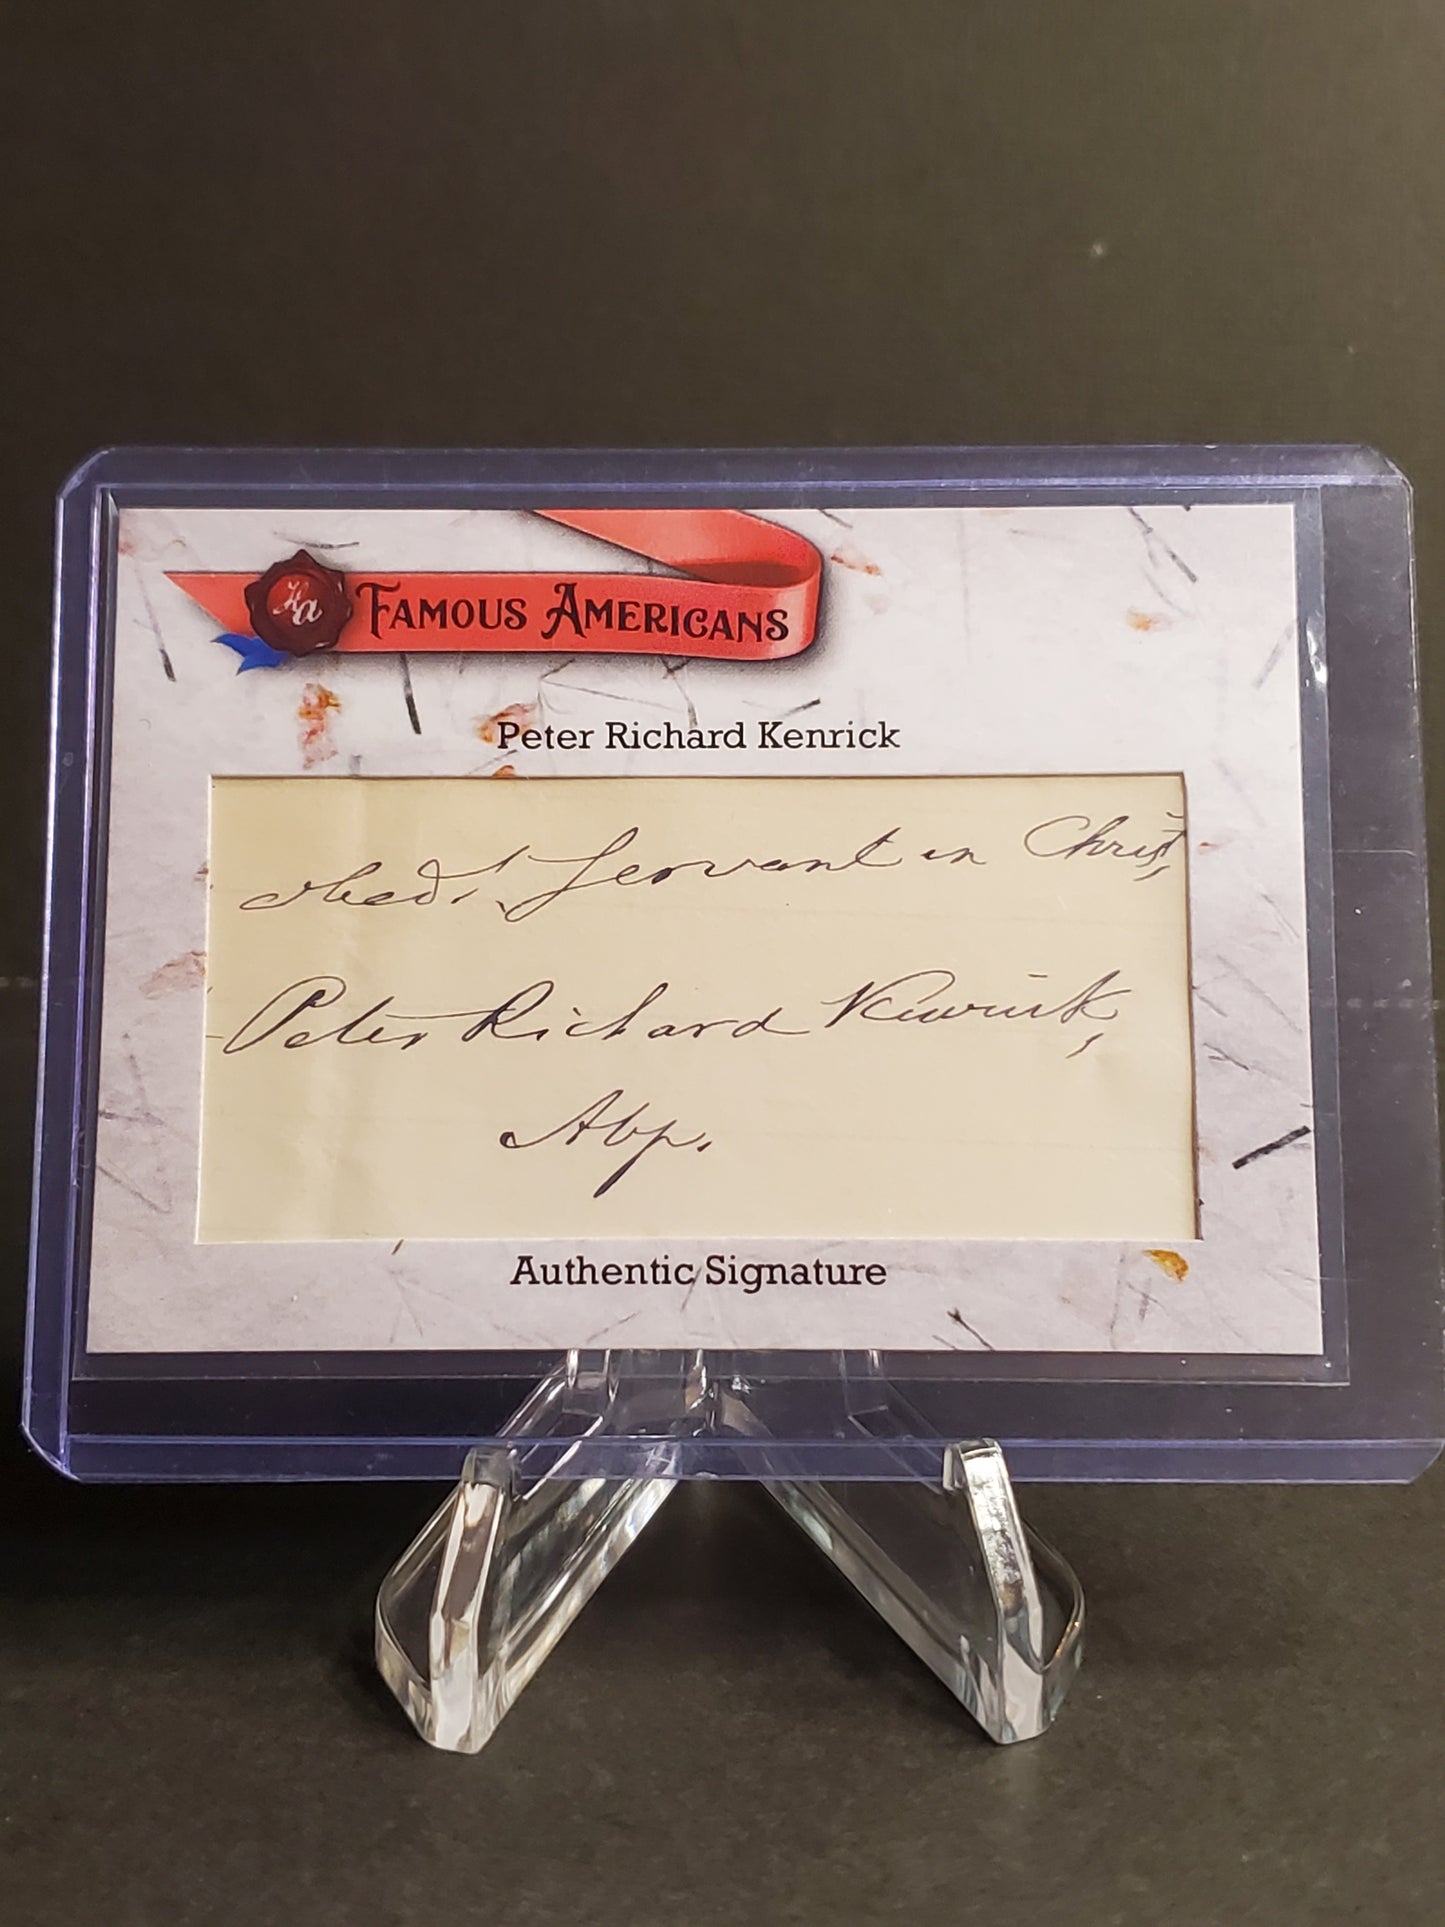 Fa
FAMOUS AMERICANS
Peter Richard Kenrick
obedt. Servant in Christ,
Peter Richard Kenrick,
Abp.
Authentic Signature